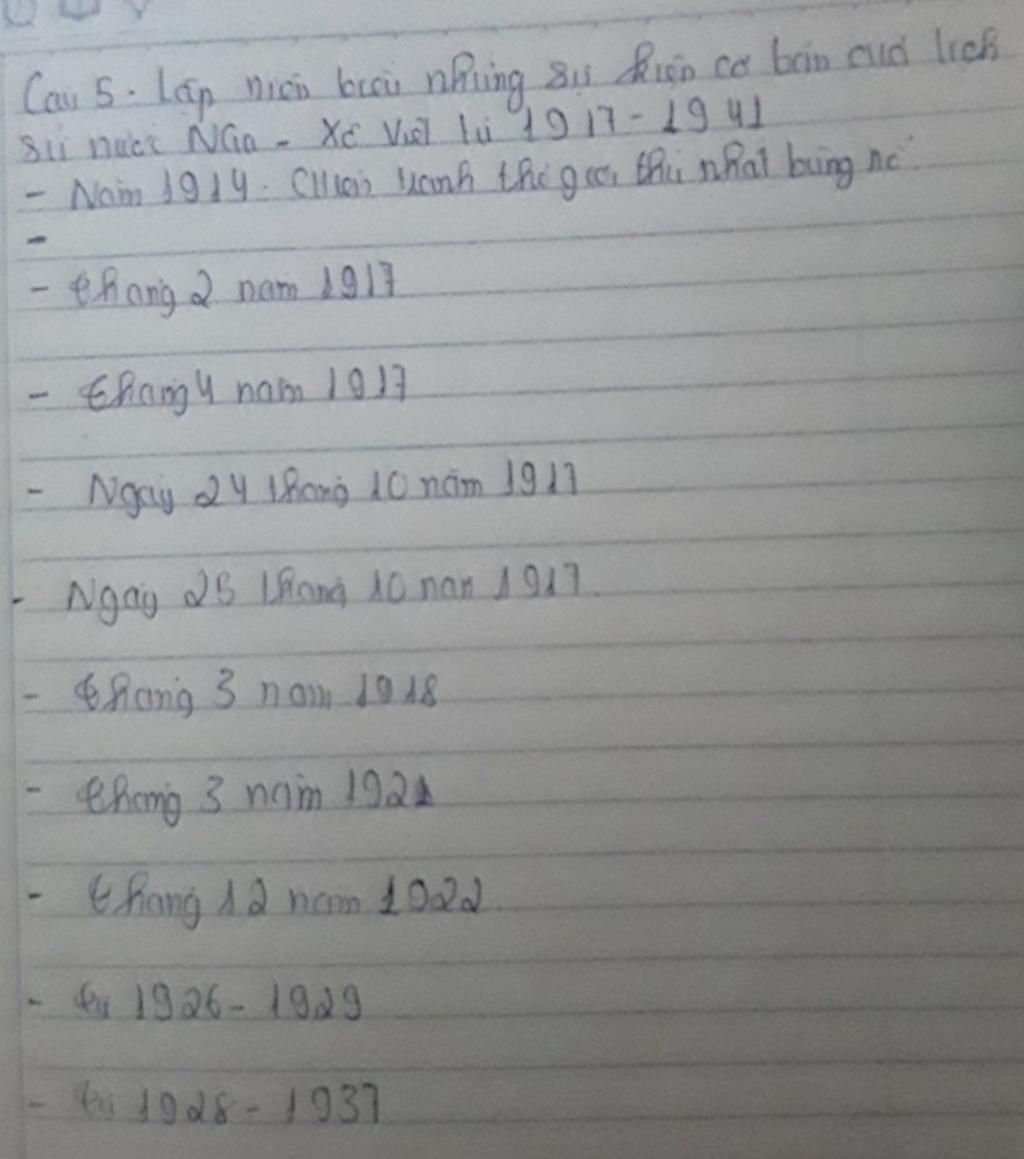 Câu 5. Lập niên biểu những sự kiện cơ bản của lịch
sử nước Nga - Xô Viết từ 1917 - 1941
- Năm 1914: Chiến tranh thế giới thứ nhất bùng nổ.
-
- tháng 2 năm 1917
- tháng 4 năm 1917
- Ngày 24 tháng 10 năm 1917
- Ngày 25 tháng 10 năm 1917.
- tháng 3 năm 1918
- tháng 3 năm 1921
- tháng 12 năm 1922.
- từ 1926 - 1929
- từ 1928 - 1937